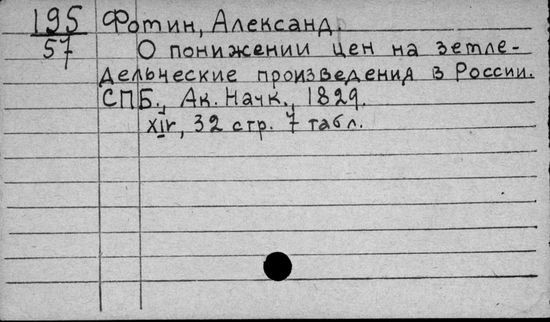 195 Фотин, Александр
57 О понижении цен на земле-
дельческие произведения в России.
СПБ., Ак. Наук., 1829.
XIV, 32 стр. 7 табл.